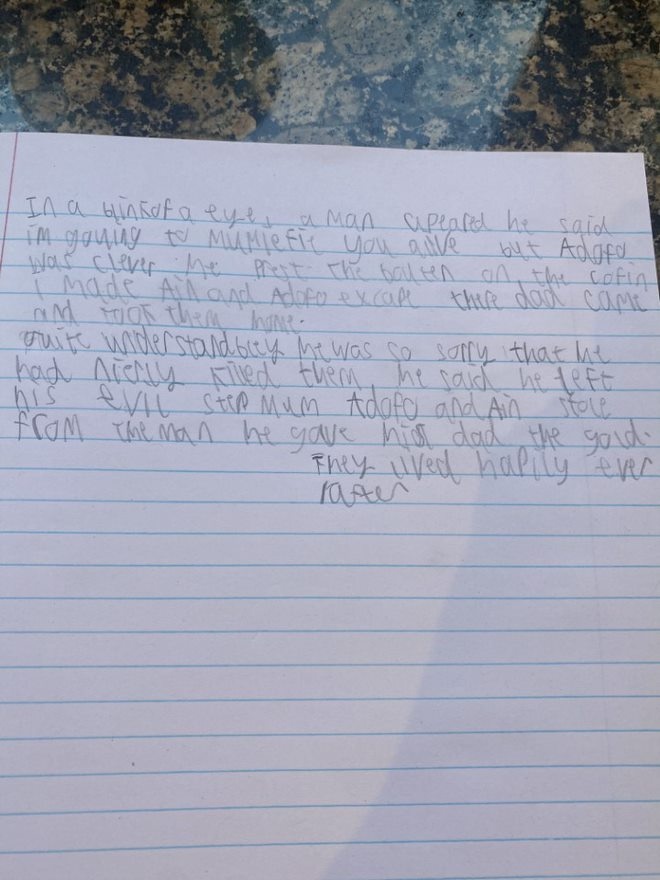 In a blink of a eye, a man apeared he said
im gouing to mumiefie you alive but Adofo
was clever he prest the bouten on the cofin
I made Ain and Adofo excape there dad came
and took them home.
quite understandbley he was so sorry that he
had nierly killed them he said he left
his evil step mum Adofo and Ain stole
from the man he gave his dad the gold.
They lived hapily ever
rafter